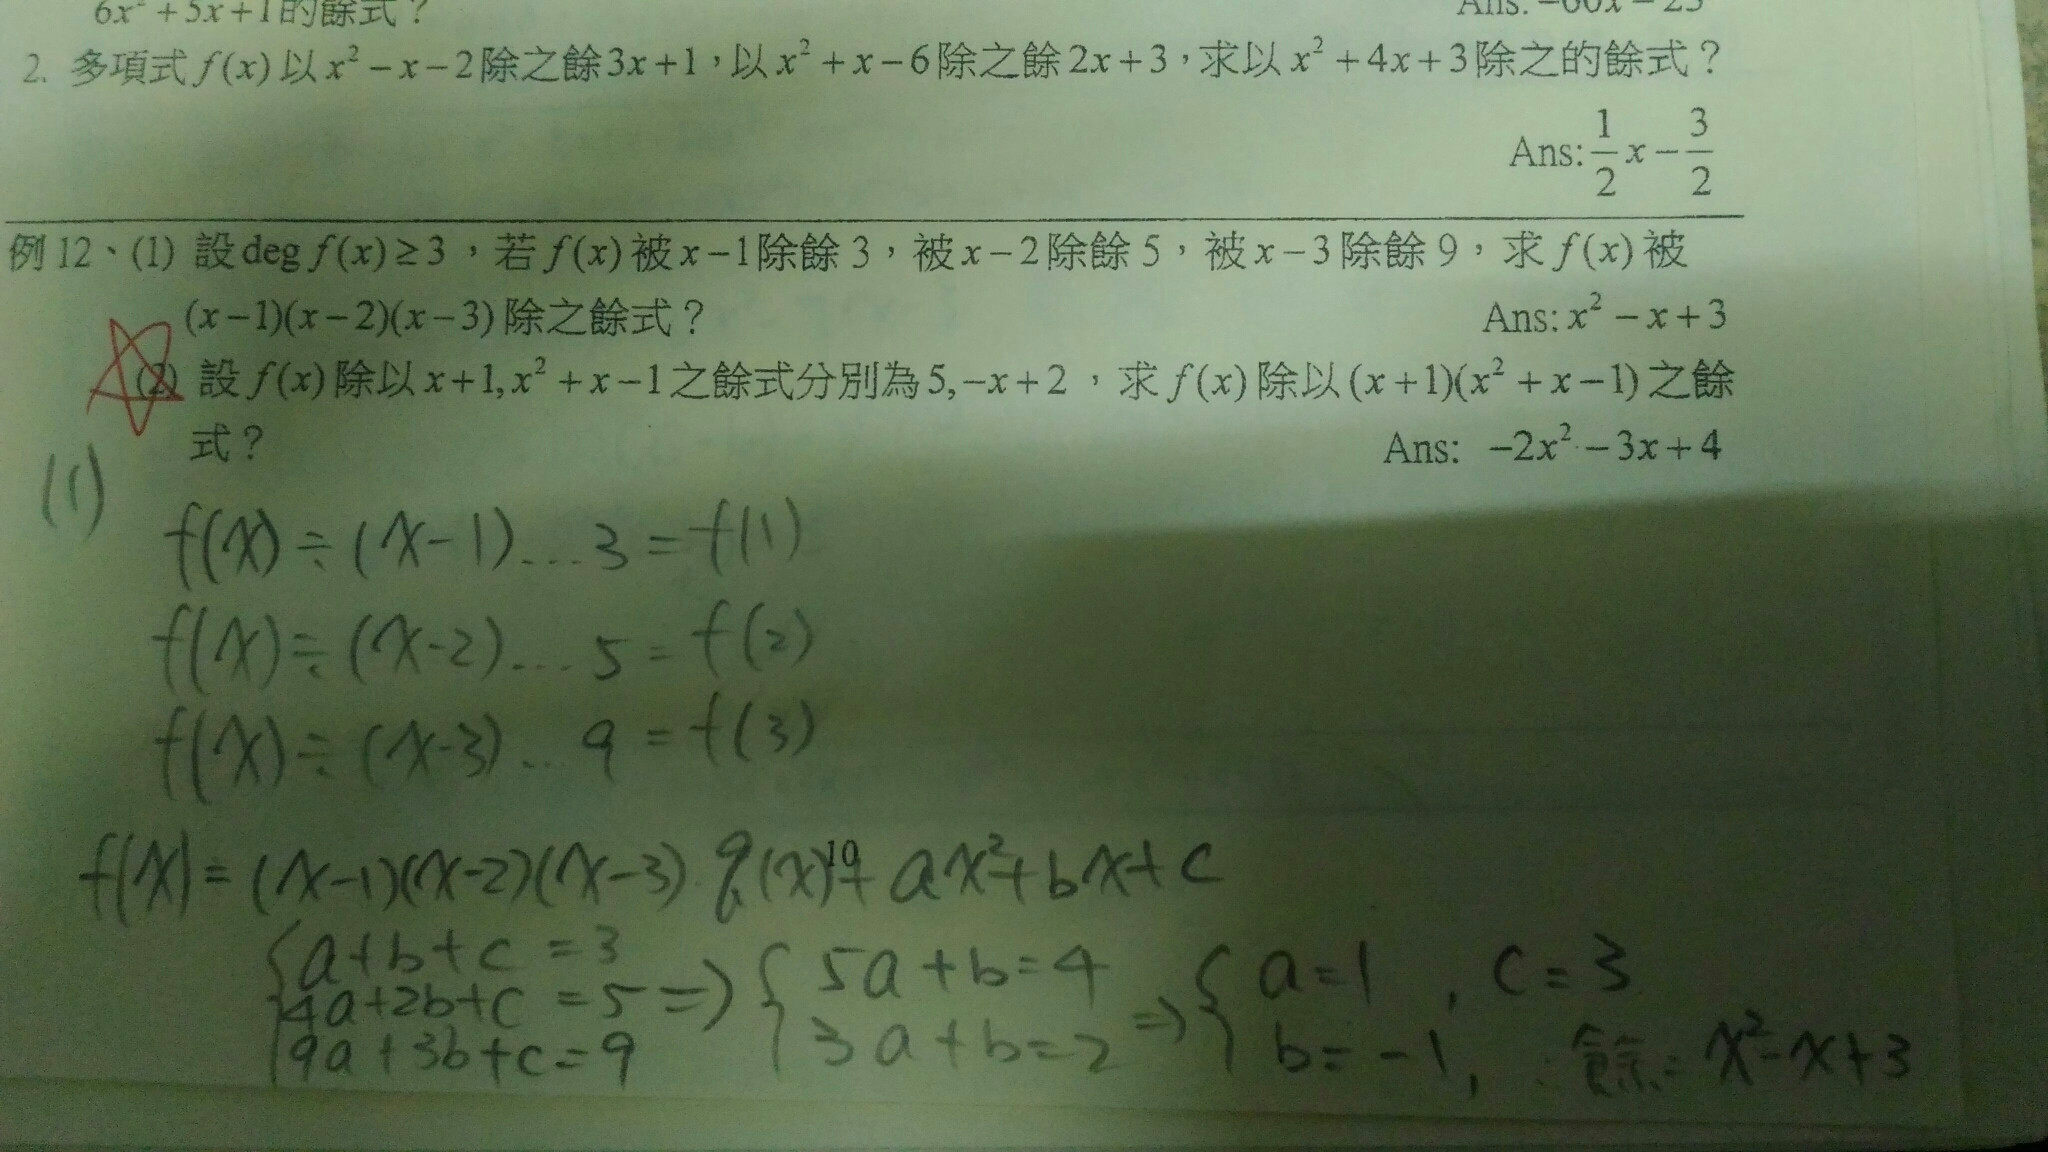 6x² + 5x + 1的餘式？
Ans: −60x − 25
2. 多項式 f(x) 以 x² − x − 2 除之餘 3x + 1，以 x² + x − 6 除之餘 2x + 3，求以 x² + 4x + 3 除之的餘式？
Ans: 1/2 x − 3/2
例 12、(1) 設 deg f(x) ≥ 3，若 f(x) 被 x − 1 除餘 3，被 x − 2 除餘 5，被 x − 3 除餘 9，求 f(x) 被
(x − 1)(x − 2)(x − 3) 除之餘式？ Ans: x² − x + 3
(2) 設 f(x) 除以 x + 1, x² + x − 1 之餘式分別為 5, −x + 2，求 f(x) 除以 (x + 1)(x² + x − 1) 之餘
式？ Ans: −2x² − 3x + 4
(1)
f(x) ÷ (x−1) ... 3 = f(1)
f(x) ÷ (x−2) ... 5 = f(2)
f(x) ÷ (x−3) ... 9 = f(3)
10
f(x) = (x−1)(x−2)(x−3) · q(x) + ax² + bx + c
{ a + b + c = 3
4a + 2b + c = 5 ⇒ { 5a + b = 4 ⇒ { a = 1 , c = 3
9a + 3b + c = 9 3a + b = 2 b = −1, ∴餘: x² − x + 3